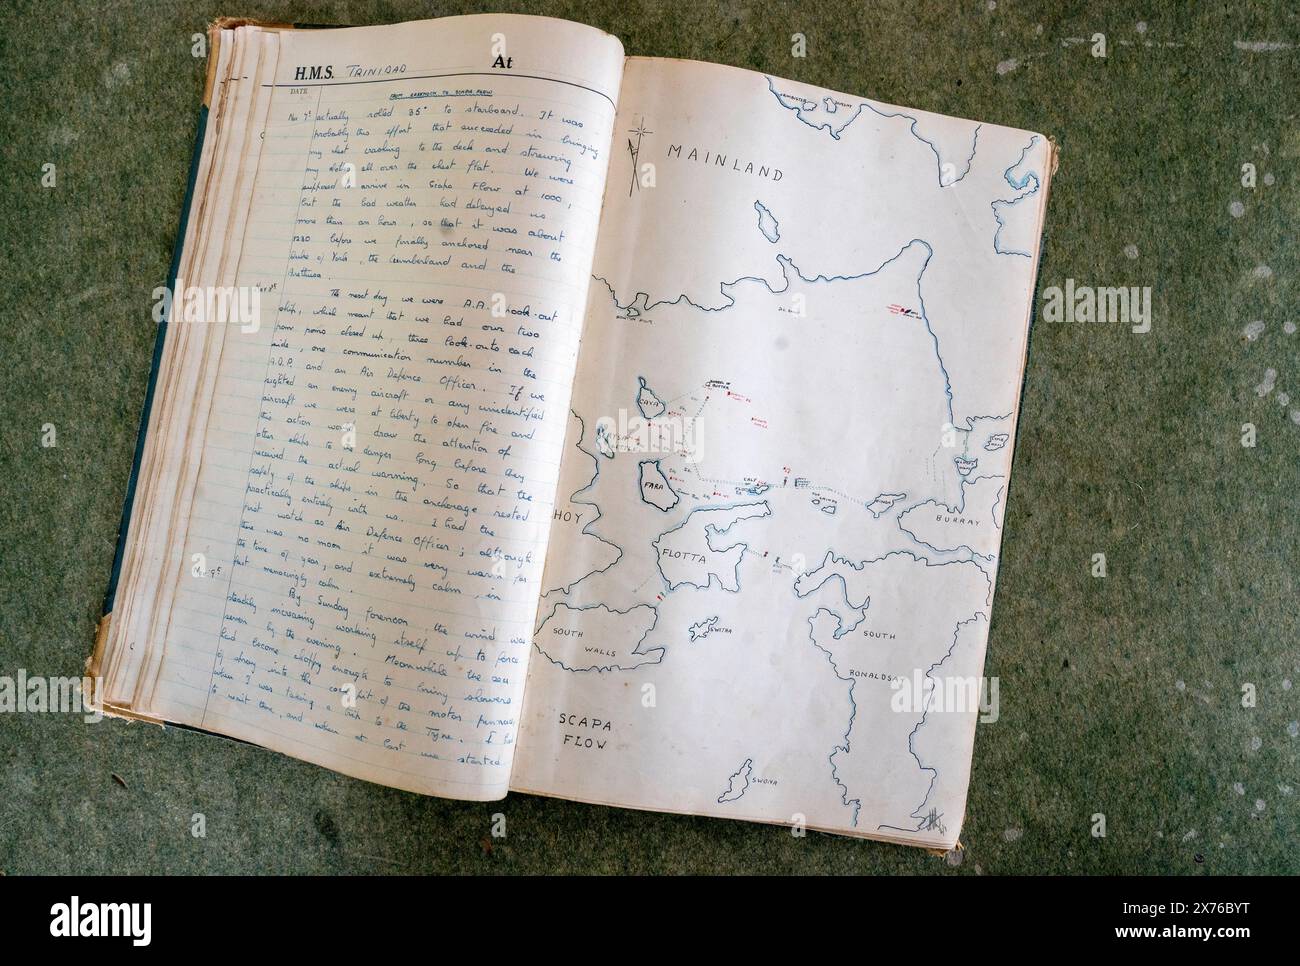 H.M.S. TRINIDAD At
DATE
FROM GREENOCK TO SCAPA FLOW
Nov 7th actually rolled 35° to starboard. It was
probably this effort that succeeded in bringing
my chest crashing to the deck and strewing
my clothes all over the chest flat. We were
supposed to arrive in Scapa Flow at 1000,
but the bad weather had delayed us
more than an hour, so that it was about
1230 before we finally anchored near the
Duke of York, the Cumberland and the
Arethusa.
Nov 8th The next day we were A.A. look-out
ship, which meant that we had our two
pom poms closed up, three look-outs each
side, one communication number in the
A.D.P. and an Air Defence Officer. If we
sighted an enemy aircraft or any unidentified
aircraft we were at liberty to open fire and
this action would draw the attention of
other ships to the danger long before they
received the actual warning. So that the
safety of the ships in the anchorage rested
practically entirely with us. I had the
first watch as Air Defence Officer; although
there was no moon it was very warm for
the time of year, and extremely calm, in
fact menacingly calm.
Nov 9th By Sunday forenoon the wind was
steadily increasing working itself up to force
seven by the evening. Meanwhile the sea
had become choppy enough to bring showers
of spray into the cockpit of the motor pinnace
when I was taking a trip to the Tyne. I had
to wait there, and when at last we started
MAINLAND
CAVA
FARA
HOY
FLOTTA
BURRAY
SWITHA
SOUTH
WALLS
SOUTH
RONALDSAY
SCAPA
FLOW
SWONA
alamy
Image ID: 2X76BYT
www.alamy.com